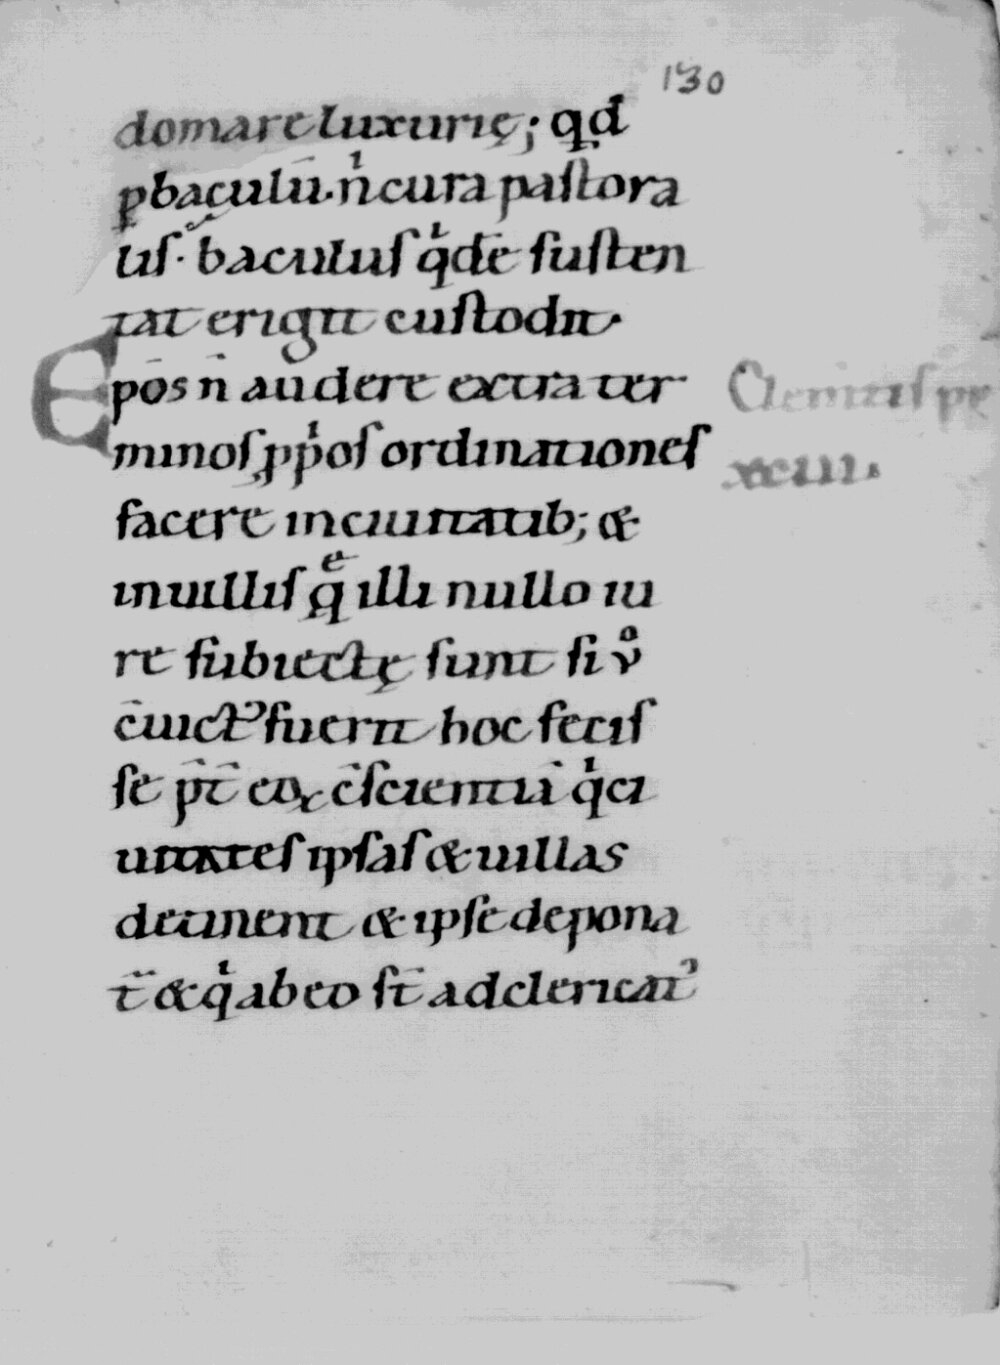 130
domare luxurię; qd
ꝑ baculū. nͥ cura pastora
lis. baculus qͥdē susten
tat erigit custodit.
Ep̄os n̄ audere extra ter
minos ꝓpͥos ordinationes
facere in ciuitatib; &
in uillis qͤ illi nullo iu
re subiectę sunt si uͦ
c̄uictꝰ fuerit hoc fecis
se p̄t̄ eoꝝ c̄scientiā qͥ ci
uitates ipsas & uillas
detinent & ipse depona
t̄ & qͥ ab eo st̄ ad clericatꝰ
Clemitis pp
xciiii.